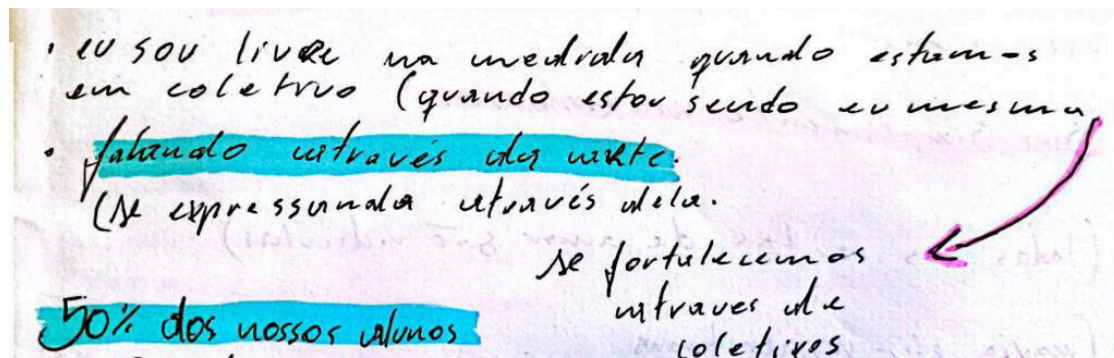 • eu sou livre na medida quando estamos
em coletivo (quando estou sendo eu mesma,
• falando através da arte.
(se expressando através dela.
se fortalecemos
através de
coletivos
50% dos nossos alunos